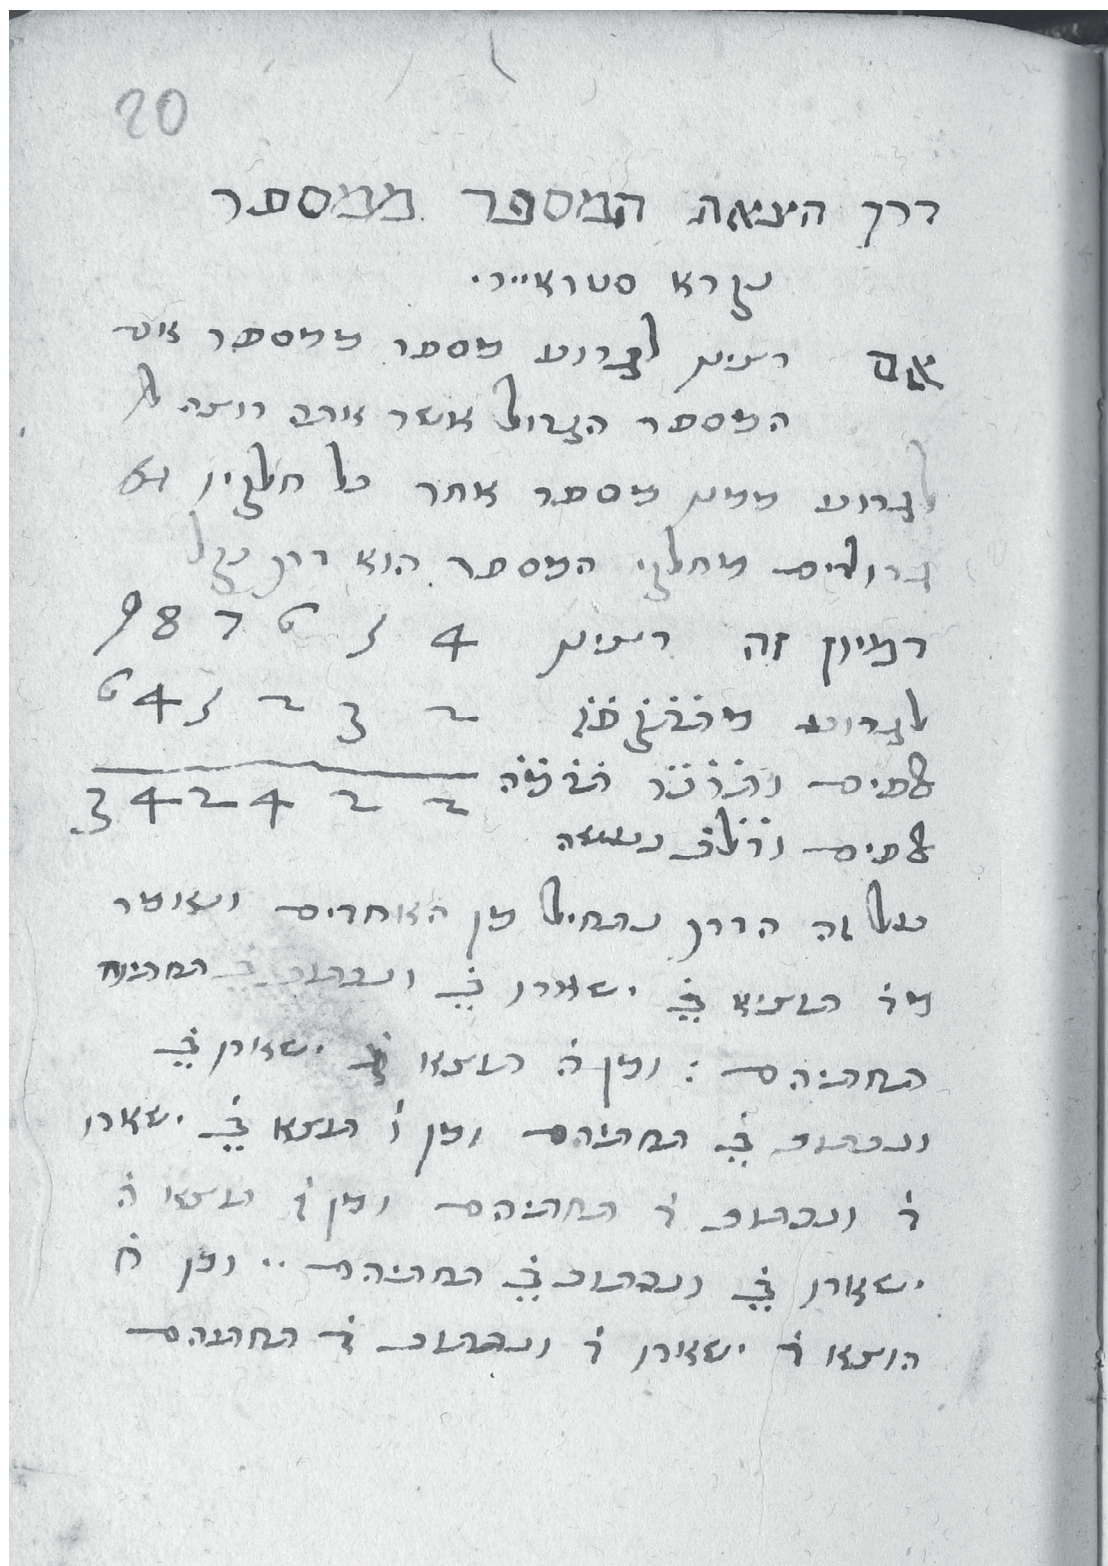 20
דרך הוצאת המספר ממספר
נקרא סטראיירי
אם רצית לגרוע מספר ממספר אם
המספר הגדול אשר אתה רוצה ל
לגרוע ממנו מספר אחר כל חלקיו
גדולים מחלקי המספר הוא דרך נקל
דמיון זה רצית 4 5 6 7 8 9
לגרוע 2 3 2 5 4 6
אלפים
2 2 4 2 4 3
אלפים נעשה
על זה הדרך נתחיל מן האחדים ונאומר
מד הוציא ב ישארו ב ונכתוב ב
תחתיהם : ומן ה הוצא ג ישארו ב
ונכתוב ב תחתיהם ומן ו הוצא ב ישארו
ד ונכתוב ד תחתיהם ומן ז הוצא ה
ישארו ב ונכתוב ב תחתיהם .. ומן ח
הוצא ד ישארו ד ונכתוב ד תחתיהם